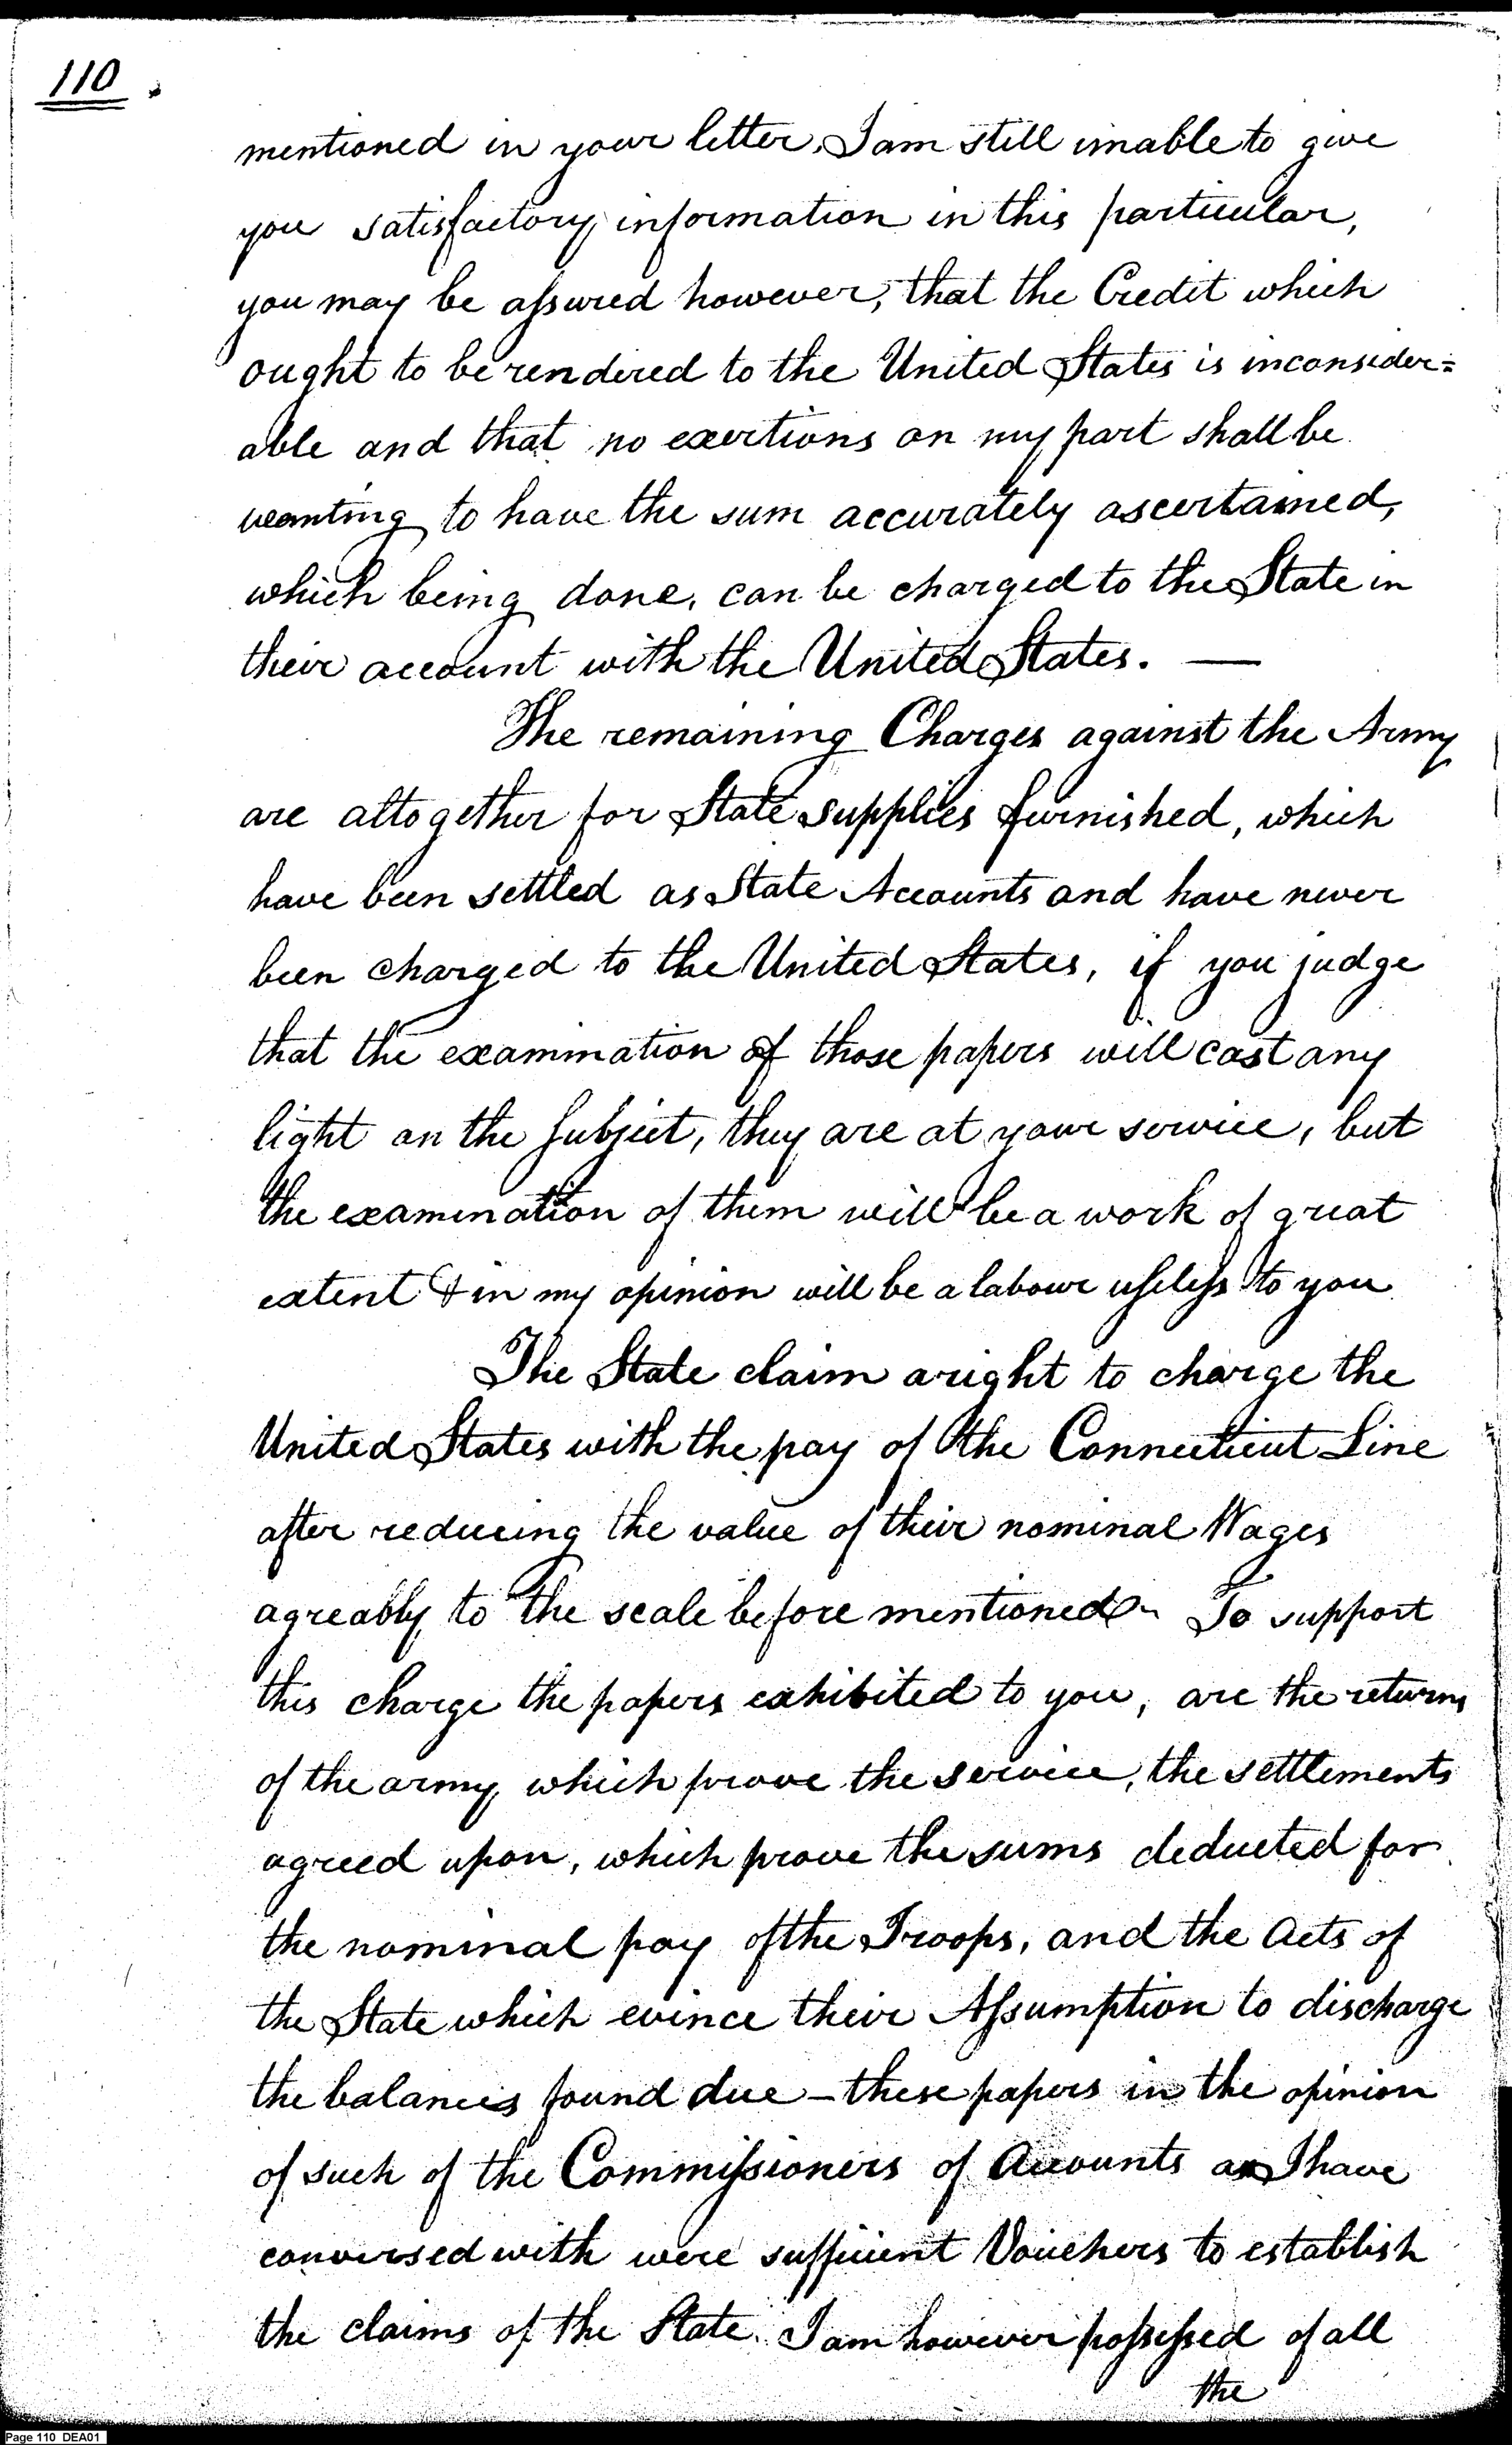 110.
mentioned in your letter, I am still unable to give
you satisfactory information in this particular,
you may be aſsured however, that the Credit which
ought to be rendered to the United States is inconsider=
able and that no exertions on my part shall be
wanting to have the sum accurately ascertained,
which being done, can be charged to the State in
their account with the United States. —
The remaining Charges against the Army
are altogether for State supplies furnished, which
have been settled as State Accounts and have never
been charged to the United States, if you judge
that the examination of those papers will cast any
light on the subject, they are at your service, but
the examination of them will be a work of great
extent & in my opinion will be a labour uſeleſs to you
The State claim a right to charge the
United States with the pay of the Connecticut Line
after reducing the value of their nominal Wages
agreably to the scale before mentioned~ To support
this charge the papers exhibited to you, are the returns
of the army, which prove the service, the settlements
agreed upon, which prove the sums deducted for
the nominal pay of the Troops, and the Acts of
the State which evince their Aſsumption to discharge
the balances found due – these papers in the opinion
of such of the Commiſsioners of Accounts as I have
conversed with were sufficient Vouchers to establish
the claims of the State. I am however poſseſsed of all
the
Page 110 DEA01